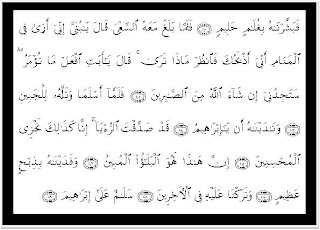 فَبَشَّرْنَٰهُ بِغُلَٰمٍ حَلِيمٍ ۝ فَلَمَّا بَلَغَ مَعَهُ ٱلسَّعْىَ قَالَ يَٰبُنَىَّ إِنِّىٓ أَرَىٰ فِى
ٱلْمَنَامِ أَنِّىٓ أَذْبَحُكَ فَٱنظُرْ مَاذَا تَرَىٰ ۚ قَالَ يَٰٓأَبَتِ ٱفْعَلْ مَا تُؤْمَرُ ۖ
سَتَجِدُنِىٓ إِن شَآءَ ٱللَّهُ مِنَ ٱلصَّٰبِرِينَ ۝ فَلَمَّآ أَسْلَمَا وَتَلَّهُۥ لِلْجَبِينِ
۝ وَنَٰدَيْنَٰهُ أَن يَٰٓإِبْرَٰهِيمُ ۝ قَدْ صَدَّقْتَ ٱلرُّءْيَآ ۚ إِنَّا كَذَٰلِكَ نَجْزِى
ٱلْمُحْسِنِينَ ۝ إِنَّ هَٰذَا لَهُوَ ٱلْبَلَٰٓؤُا۟ ٱلْمُبِينُ ۝ وَفَدَيْنَٰهُ بِذِبْحٍ
عَظِيمٍ ۝ وَتَرَكْنَا عَلَيْهِ فِى ٱلْءَاخِرِينَ ۝ سَلَٰمٌ عَلَىٰٓ إِبْرَٰهِيمَ ۝